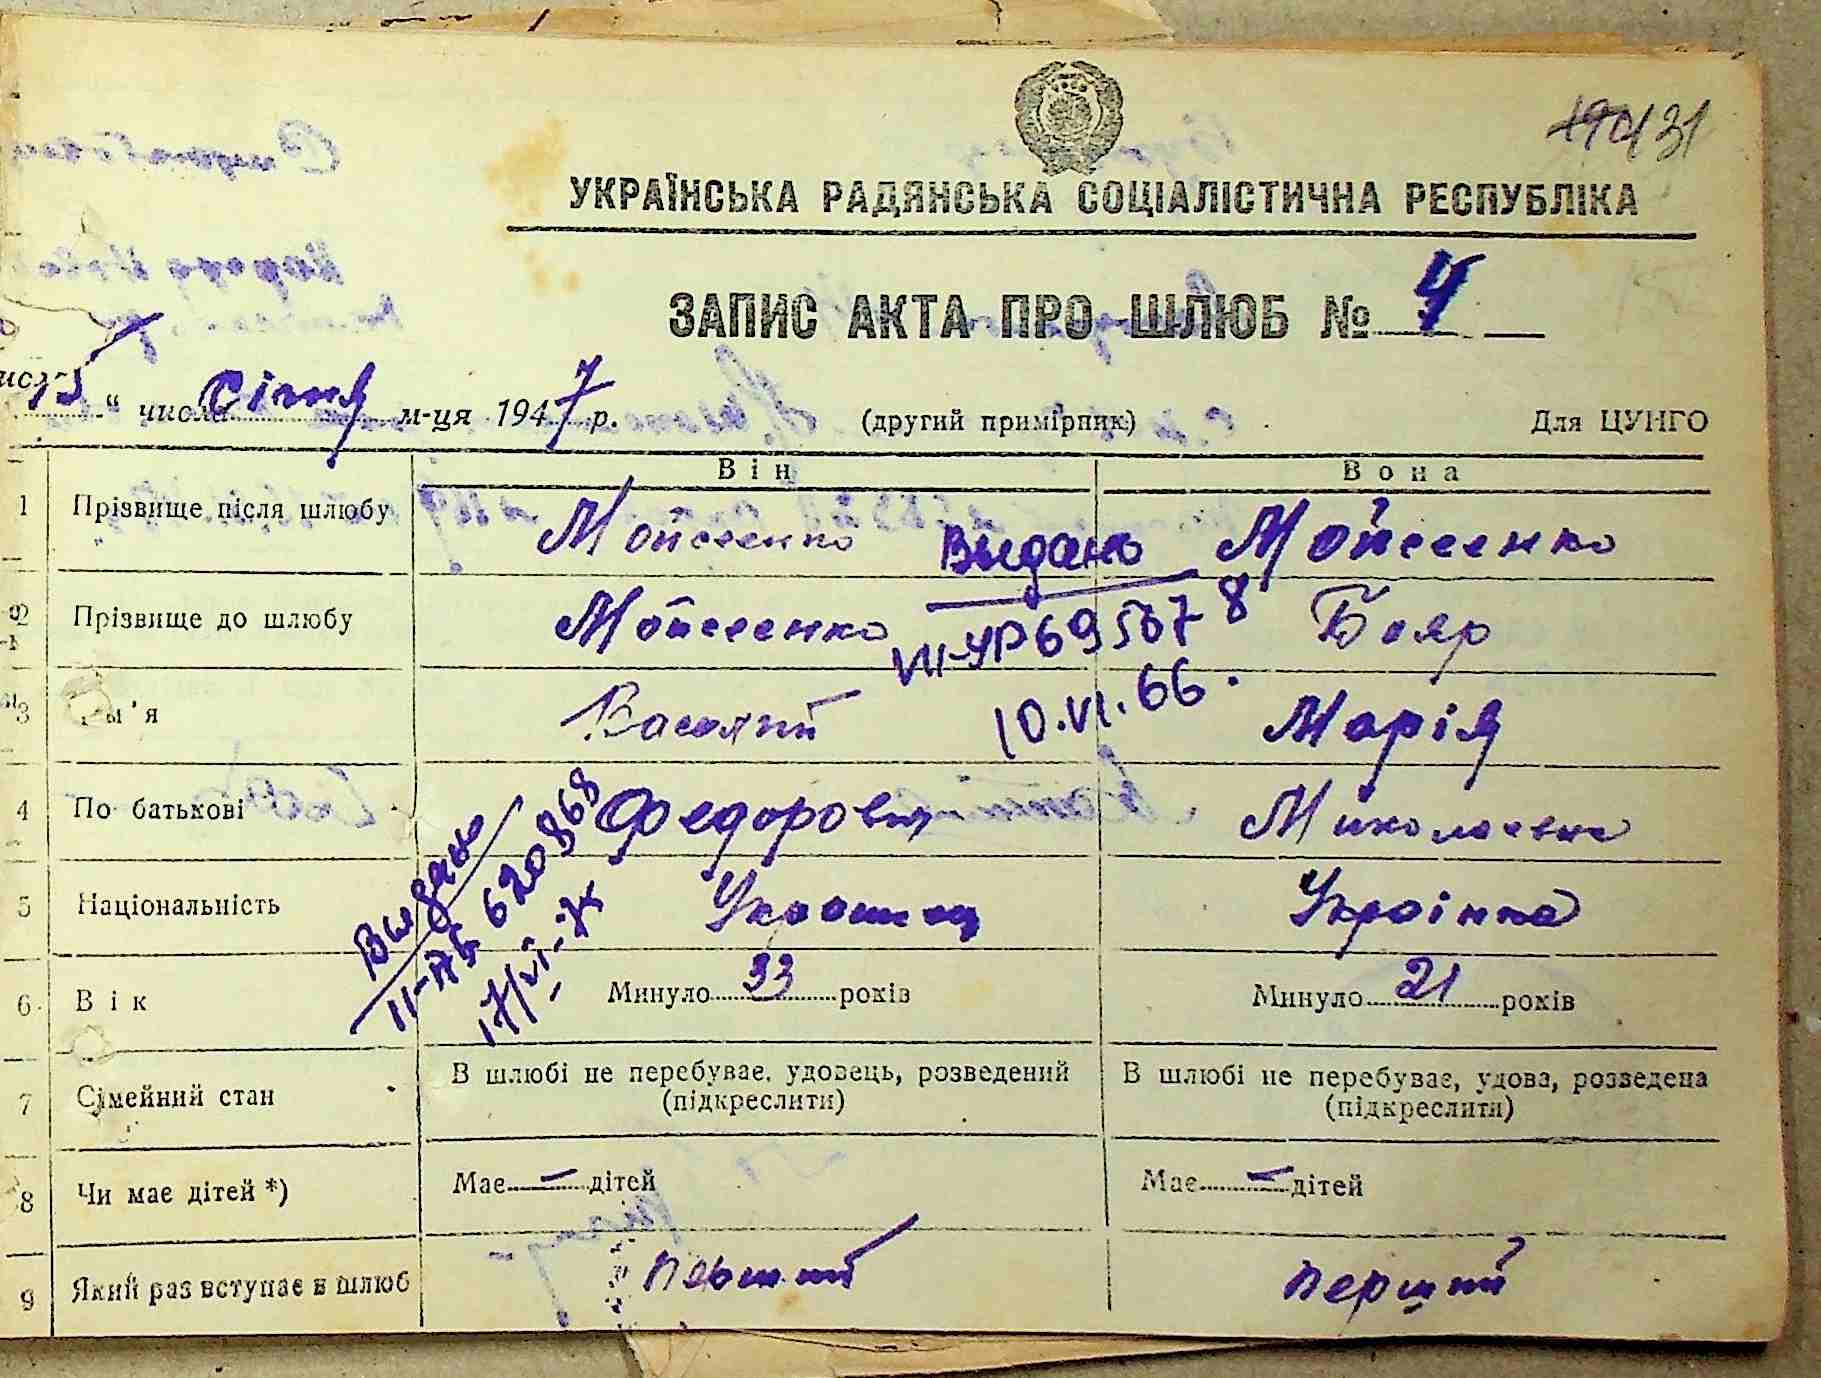 31
УКРАЇНСЬКА РАДЯНСЬКА СОЦІАЛІСТИЧНА РЕСПУБЛІКА
ЗАПИС АКТА ПРО ШЛЮБ № 4
15 " числа січня м-ця 1947 р. (другий примірник) Для ЦУНГО
Він Вона
1 Прізвище після шлюбу Мойсеенко Мойсеенко
Видано
2 Прізвище до шлюбу Мойсеенко Бояр
VII-УР 695678
10.VI.66.
3 Ім'я Василий Марія
4 По батькові Федорович Миколаевна
Видано
II-АБ 620868
17/VI-
5 Національність Украинец Українка
6 Вік Минуло 33 років Минуло 21 років
7 Сімейний стан В шлюбі не перебуває, удовець, розведений (підкреслити) В шлюбі не перебуває, удова, розведена (підкреслити)
8 Чи має дітей *) Має — дітей Має — дітей
9 Який раз вступає в шлюб первий перший